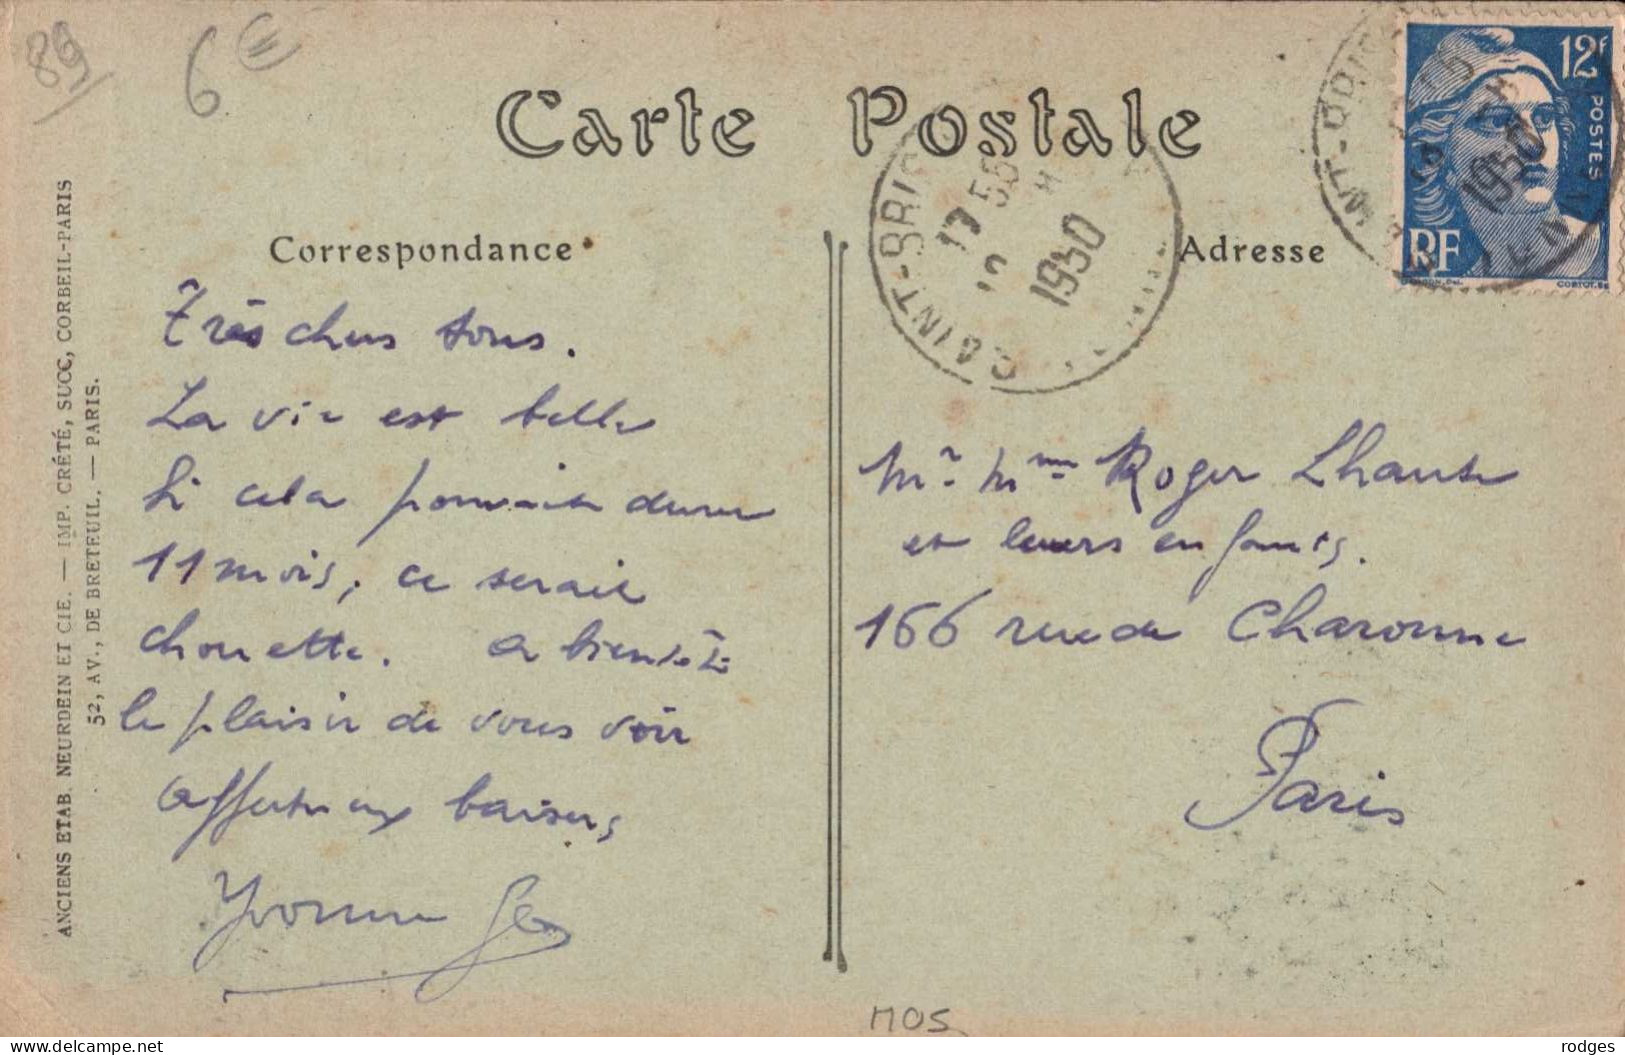 89
6 €
Carte Postale
12F
POSTES
RF
1950
SAINT-BRIS
17 55
H
1950
ANCIENS ETAB. NEURDEIN ET CIE. — IMP. CRÉTÉ, SUCC, CORBEIL-PARIS
52, AV., DE BRETEUIL. — PARIS.
Correspondance
Très chers tous.
La vie est belle
Si cela pouvait durer
11 mois, ce serait
chouette. a bientôt
le plaisir de vous voir
affectueux baisers
Yvonne
Adresse
Mr. Mme Roger Lhaute
et leurs enfants.
166 rue de Charonne
Paris
MOS
rodges
delcampe.net